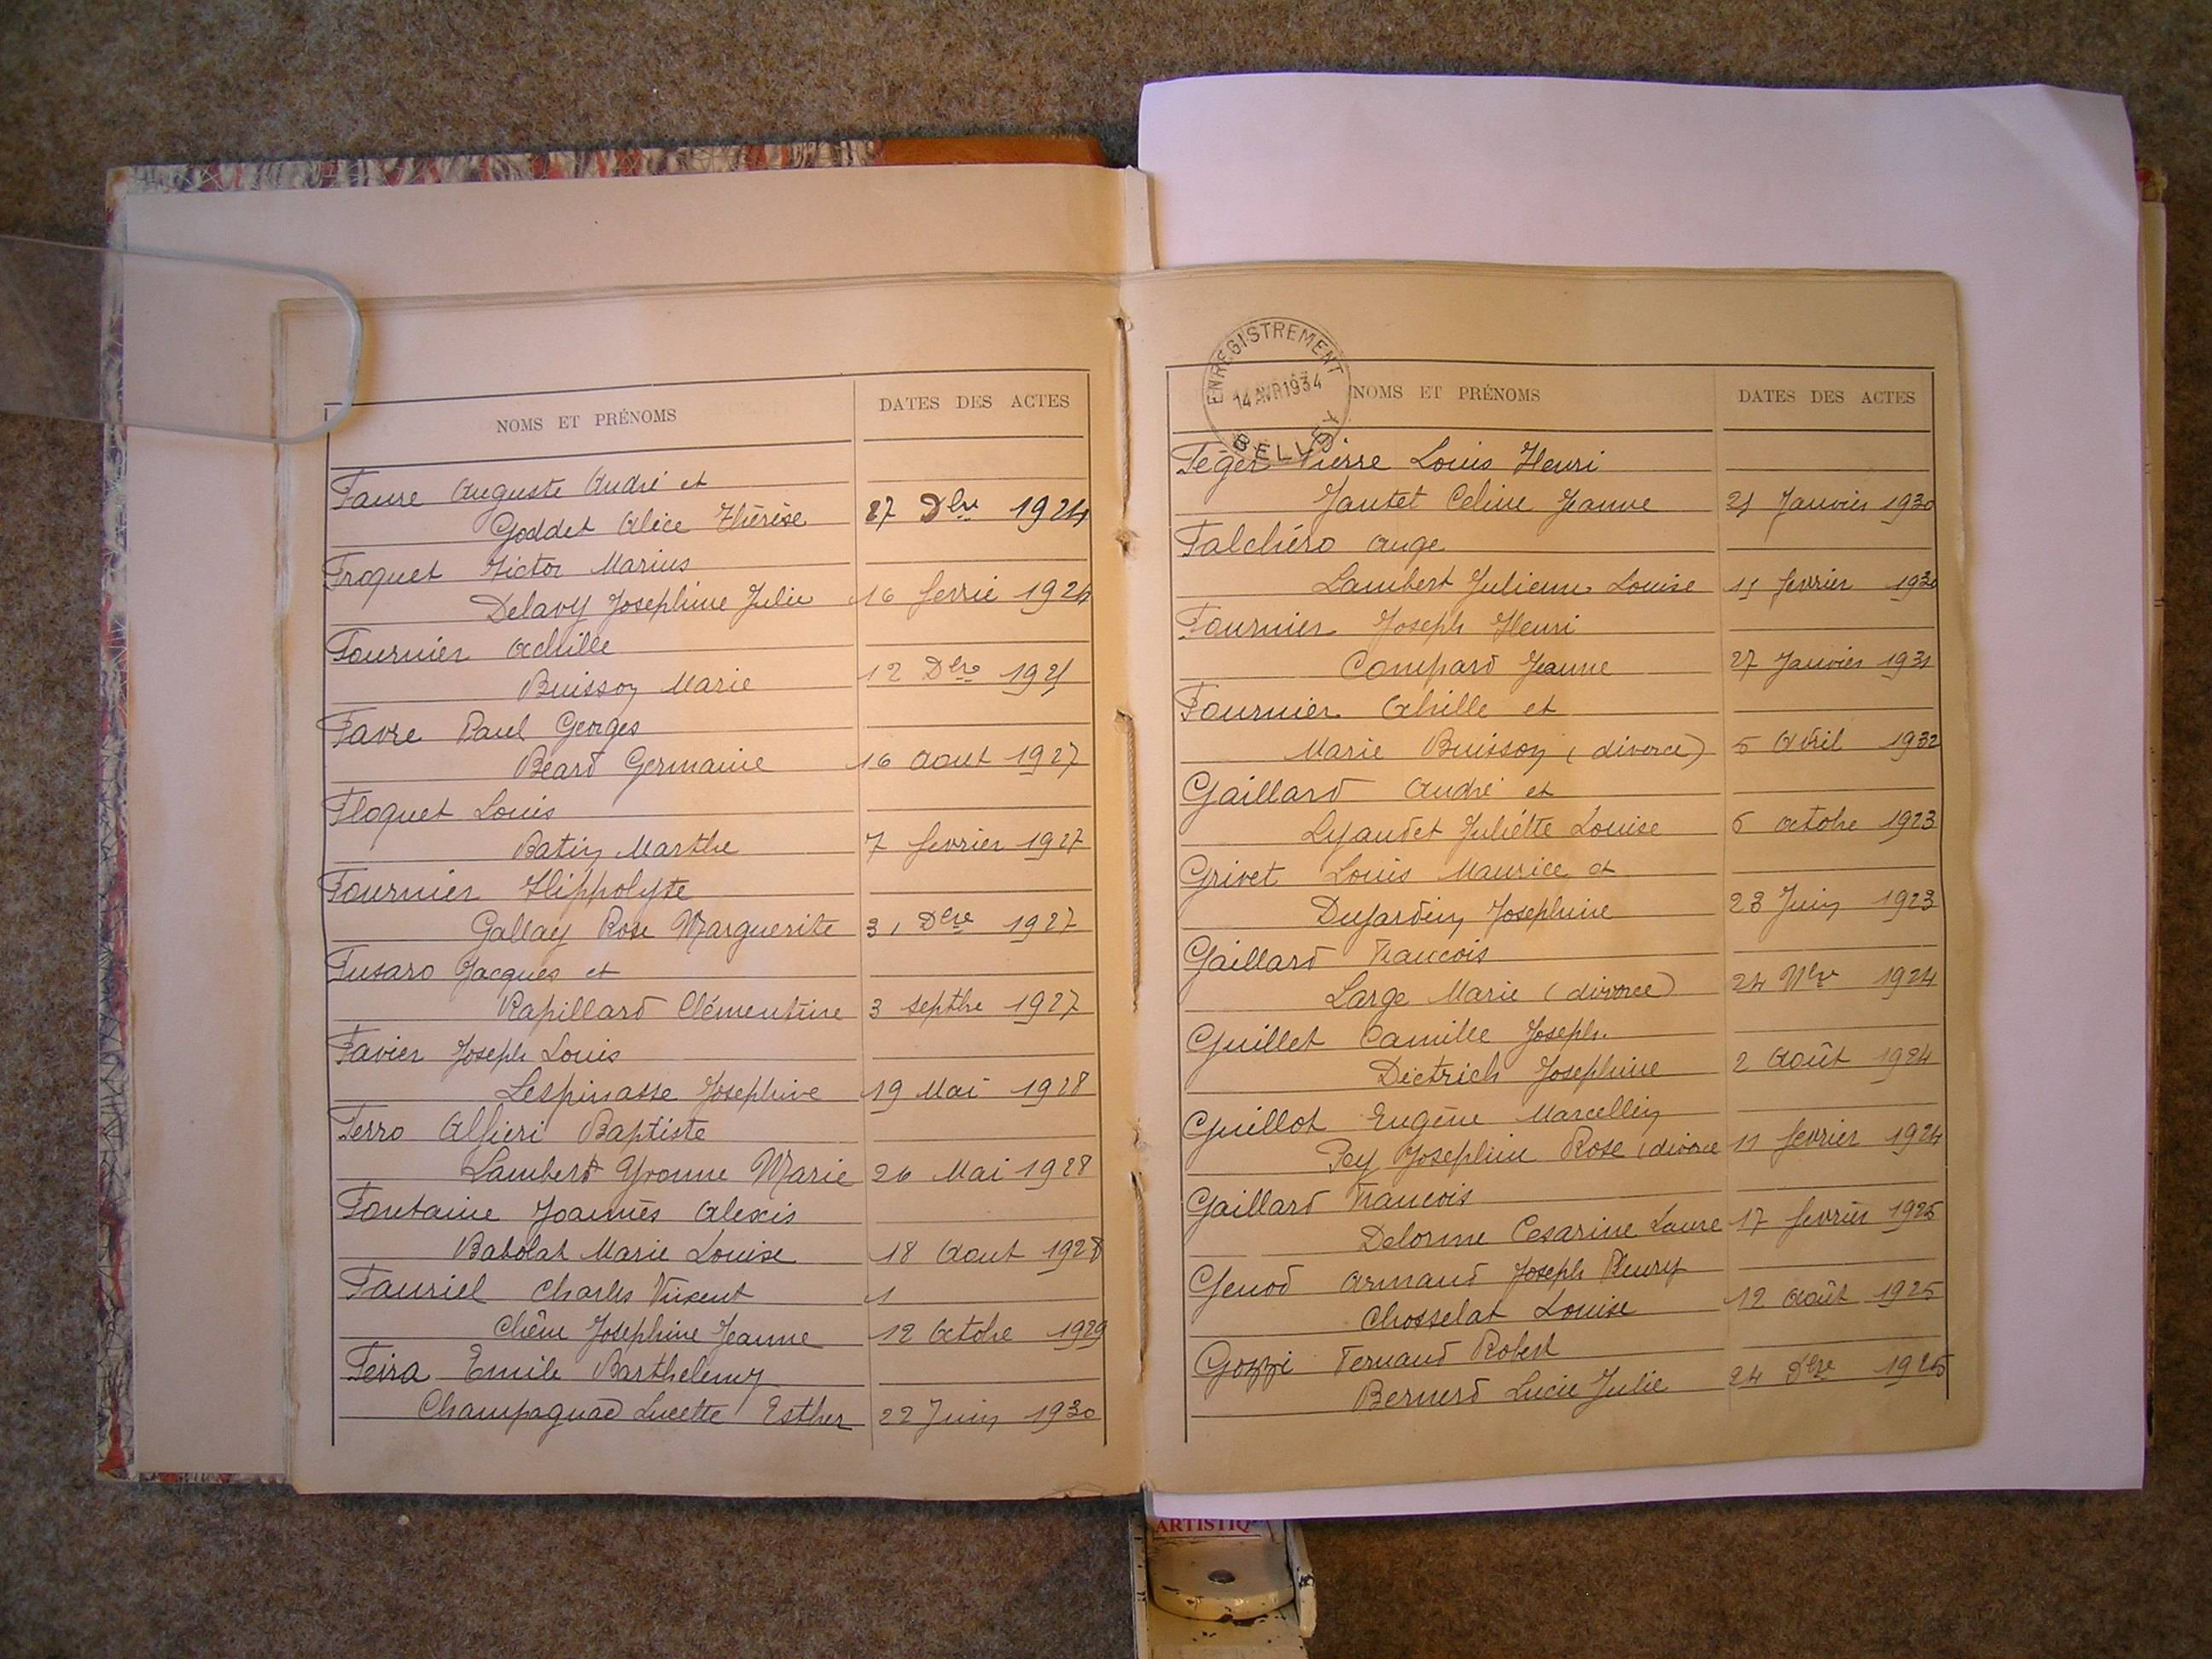 NOMS ET PRÉNOMS DATES DES ACTES
Faure Auguste André et
Goddet Alice Thérèse 27 Dbre 1924
Froquet Victor Marius
Delavy Josephine Julie 16 fevrie 1924
Fournier Achille
Buisson Marie 12 Dbre 1921
Favre Paul Georges
Béard Germaine 16 aout 1927
Floquet Louis
Batin Marthe 7 fevrier 1927
Fournier Hippolyte
Gallay Rose Marguerite 31 Dbre 1927
Fusaro Jacques et
Rapillard Clémentine 3 septbre 1927
Favier Joseph Louis
Lespinasse Josephine 19 Mai 1928
Ferro Alfieri Baptiste
Lambert Yvonne Marie 26 Mai 1928
Fontaine Joannès Alexis
Babolat Marie Louise 18 Aout 1928
Fauriel Charles Vincent 1
Chêne Josephine Jeanne 12 Octobre 1929
Feira Emile Barthelemy
Champagnad Lucette Esther 22 Juin 1930
ENREGISTREMENT
14 AVR 1934
BELLEY
NOMS ET PRÉNOMS DATES DES ACTES
Féger Pierre Louis Henri
Jantet Celine Jeanne 21 Janvier 1930
Falchéro Ange
Lambert Julienne Louise 15 fevrier 1930
Fournier Joseph Henri
Compard Jeanne 27 Janvier 1931
Fournier Achille et
Marie Buisson (divorce) 5 Avril 1932
Gaillard André et
Lyaudet Juliétte Louise 6 octobre 1923
Grivet Louis Maurice et
Dujardin Josephine 23 Juin 1923
Gaillard Francois
Large Marie (divorce) 24 Nbre 1924
Guillet Camille Joseph
Dietrich Josephine 2 Août 1924
Guillot Eugène Marcellin
Fey Josephine Rose (divorce 11 fevrier 1924
Gaillard Francois
Delorme Cesarine Laure 17 fevrier 1925
Genod Armand Joseph Fleury
Chosselat Louise 12 Août 1925
Gozzi Fernand Robert
Bernerd Lucie Julie 24 Dbre 1925
ARTISTIQ